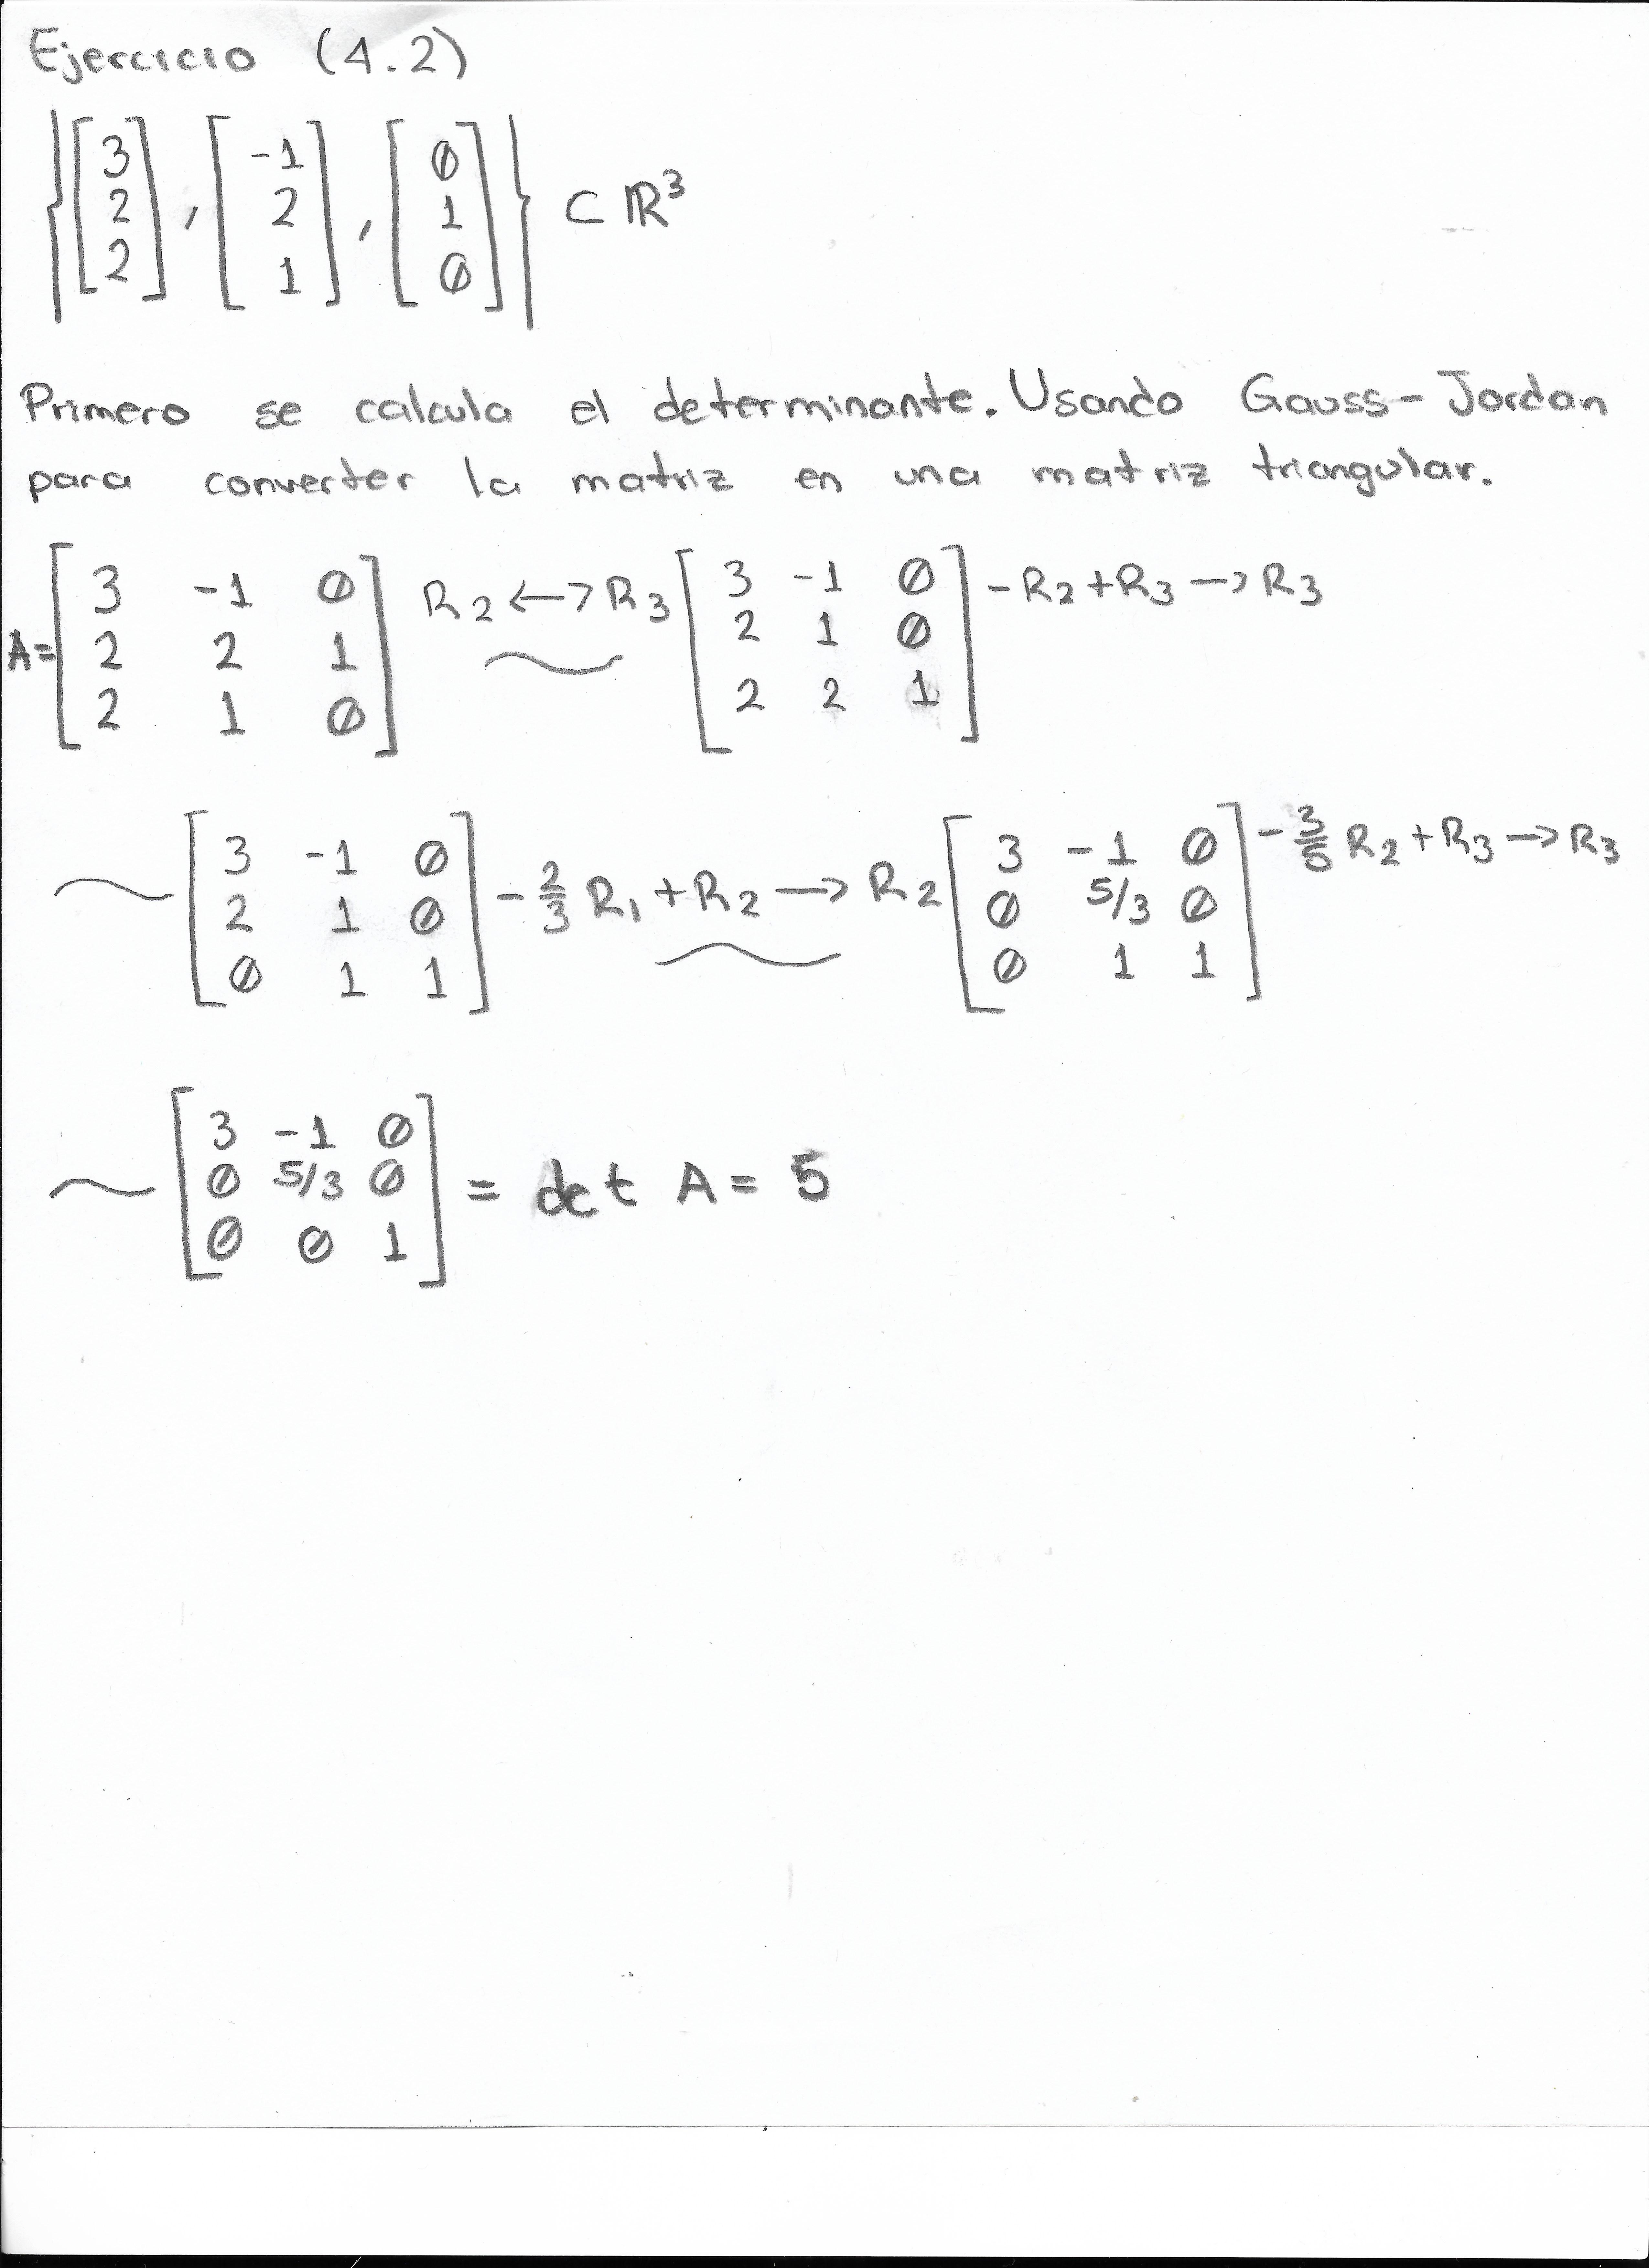 Ejercicio (4.2)
{[3 2 2], [-1 2 1], [0 1 0]} ⊂ ℝ³
Primero se calcula el determinante. Usando Gauss-Jordan
para converter la matriz en una matriz triangular.
A= [3 -1 0; 2 2 1; 2 1 0] R2 ⟷ R3 ~ [3 -1 0; 2 1 0; 2 2 1] -R2+R3 → R3
~ [3 -1 0; 2 1 0; 0 1 1] -2/3 R1+R2 → R2 ~ [3 -1 0; 0 5/3 0; 0 1 1] -3/5 R2+R3 → R3
~ [3 -1 0; 0 5/3 0; 0 0 1] = det A = 5